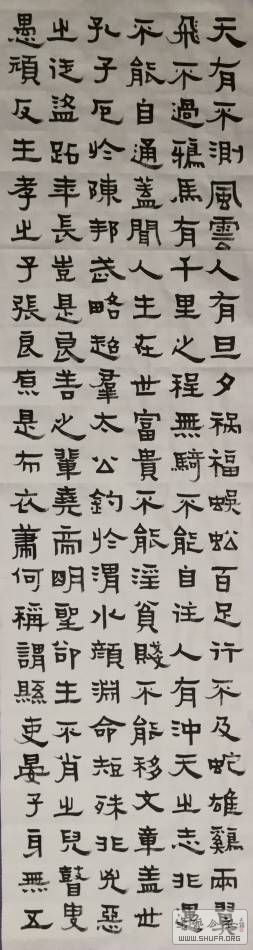 天有不測風雲人有旦夕禍福蜈蚣百足行不及蛇雄鷄兩翼
飛不過鴉馬有千里之程無騎不能自往人有沖天之志非運
不能自通蓋聞人生在世富貴不能淫貧賤不能移文章蓋世
孔子厄於陳邦武略超羣太公釣於渭水顏淵命短殊非兇惡
之徒盜跖年長豈是良善之輩堯帝明聖卻生不肖之兒瞽叟
愚頑反生孝之子張良原是布衣蕭何稱謂縣吏晏子身無五
WWW.SHUFA.ORG